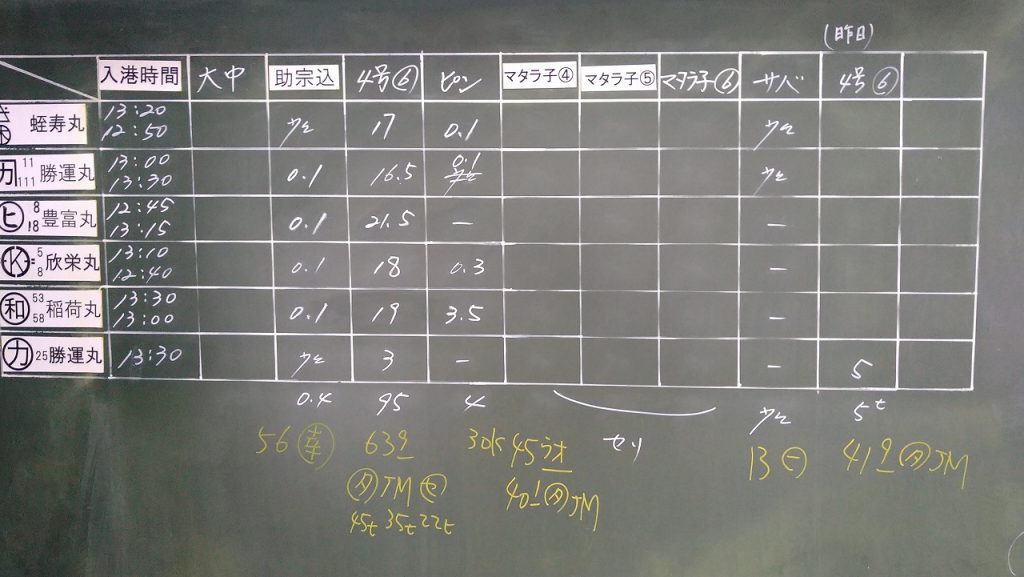 (昨日)
入港時間 大中 助宗込 4号⑥ ピン マタラ子④ マタラ子⑤ マタラ子⑥ サバ 4号⑥
蛭寿丸 13:20 12:50 少々 17 0.1 少々
カ 11 111 勝運丸 13:00 13:30 0.1 16.5 0.1 少々
ヒ 8 18 豊富丸 12:45 13:15 0.1 21.5 — —
K 5 8 欣栄丸 13:10 12:40 0.1 18 0.3 —
和 53 58 稲荷丸 13:30 13:00 0.1 19 3.5 —
カ 25 勝運丸 13:30 少々 3 — — 5
0.4 95 4 セリ 少々 5t
56 639 30k 45 13 419 JM
JM 401 JM
45t 35t 22t